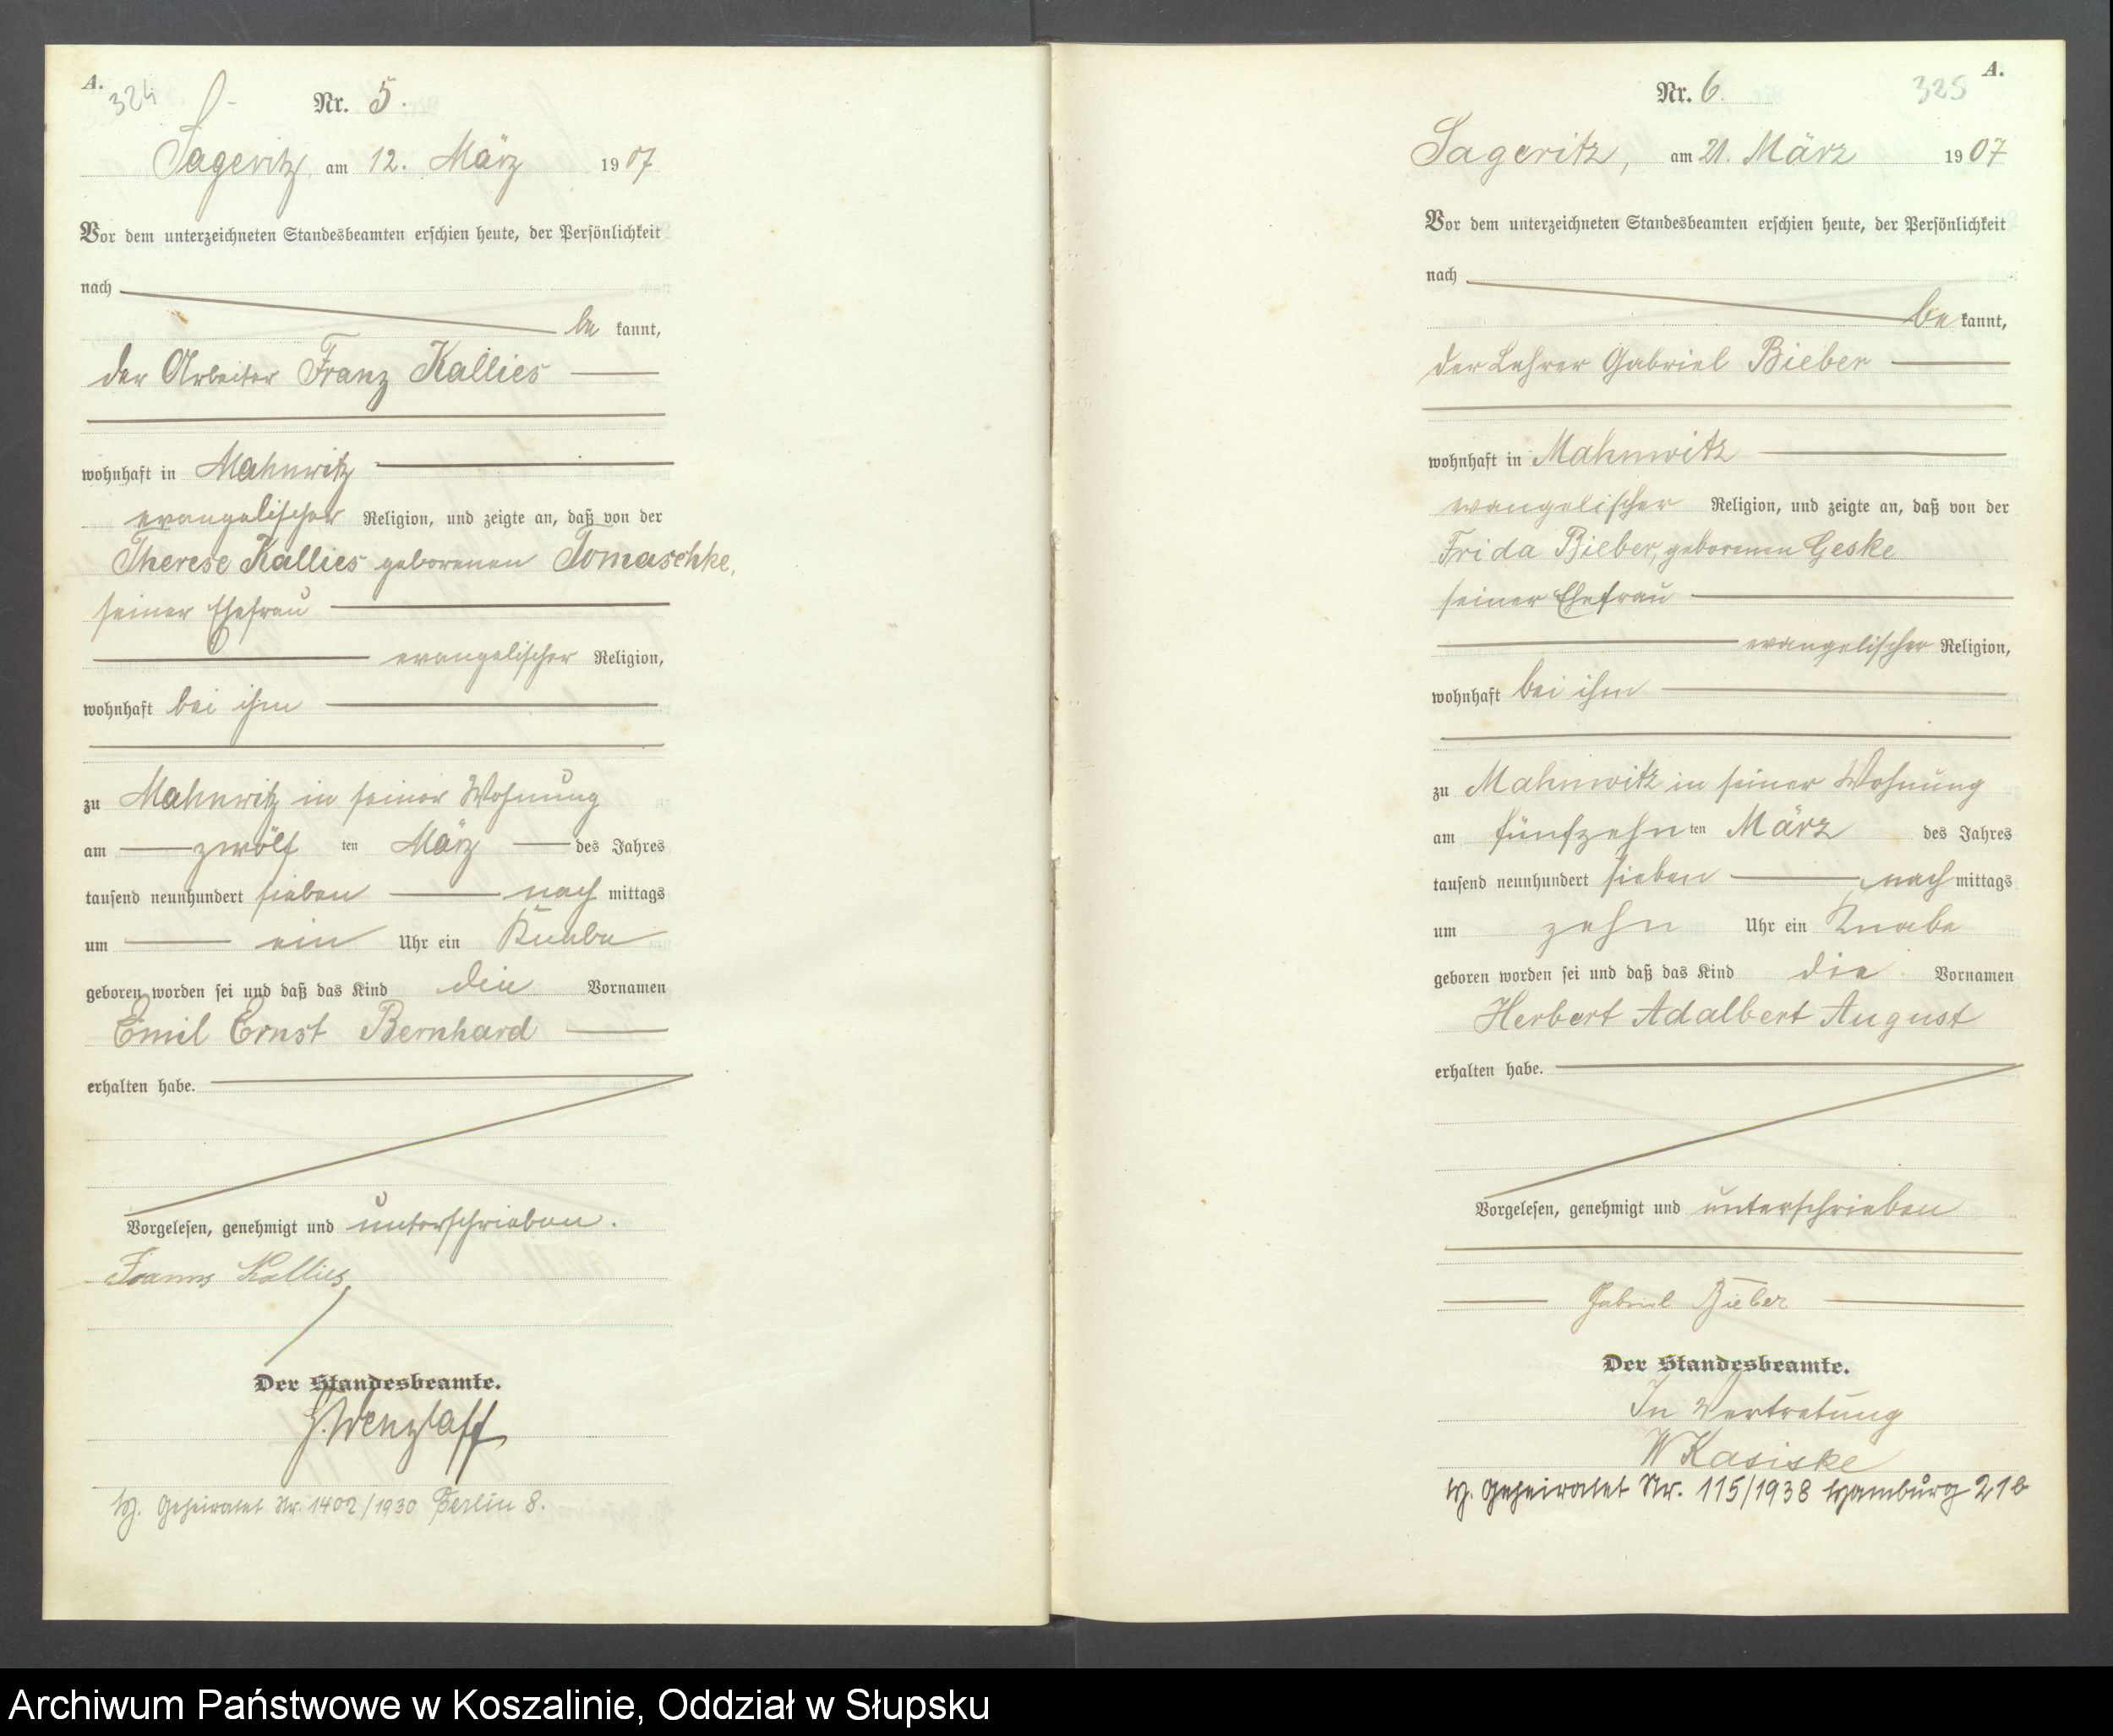 A.
324
Nr. 5.
Sageritz, am 12. März 1907
Vor dem unterzeichneten Standesbeamten erschien heute, der Persönlichkeit
nach
be kannt,
der Arbeiter Franz Kallies
wohnhaft in Mahnwitz
evangelischer Religion, und zeigte an, daß von der
Therese Kallies geborenen Tomaschke,
seiner Ehefrau
evangelischer Religion,
wohnhaft bei ihm
zu Mahnwitz in seiner Wohnung
am zwölf ten März des Jahres
tausend neunhundert sieben nach mittags
um ein Uhr ein Knabe
geboren worden sei und daß das Kind die Vornamen
Emil Ernst Bernhard
erhalten habe.
Vorgelesen, genehmigt und unterschrieben.
Franz Kallies
Der Standesbeamte.
Wenzlaff
H. Geheiratet Nr. 1402/1930 Berlin 8.
A.
325
Nr. 6.
Sageritz, am 21. März 1907
Vor dem unterzeichneten Standesbeamten erschien heute, der Persönlichkeit
nach
be kannt,
der Lehrer Gabriel Bieber
wohnhaft in Mahnwitz
evangelischer Religion, und zeigte an, daß von der
Frida Bieber, geborenen Geske
seiner Ehefrau
evangelischer Religion,
wohnhaft bei ihm
zu Mahnwitz in seiner Wohnung
am fünfzehn ten März des Jahres
tausend neunhundert sieben nach mittags
um zehn Uhr ein Knabe
geboren worden sei und daß das Kind die Vornamen
Herbert Adalbert August
erhalten habe.
Vorgelesen, genehmigt und unterschrieben
Gabriel Bieber
Der Standesbeamte.
In Vertretung
W Kasiske
H. Geheiratet Nr. 115/1938 Hamburg 21b
Archiwum Państwowe w Koszalinie, Oddział w Słupsku